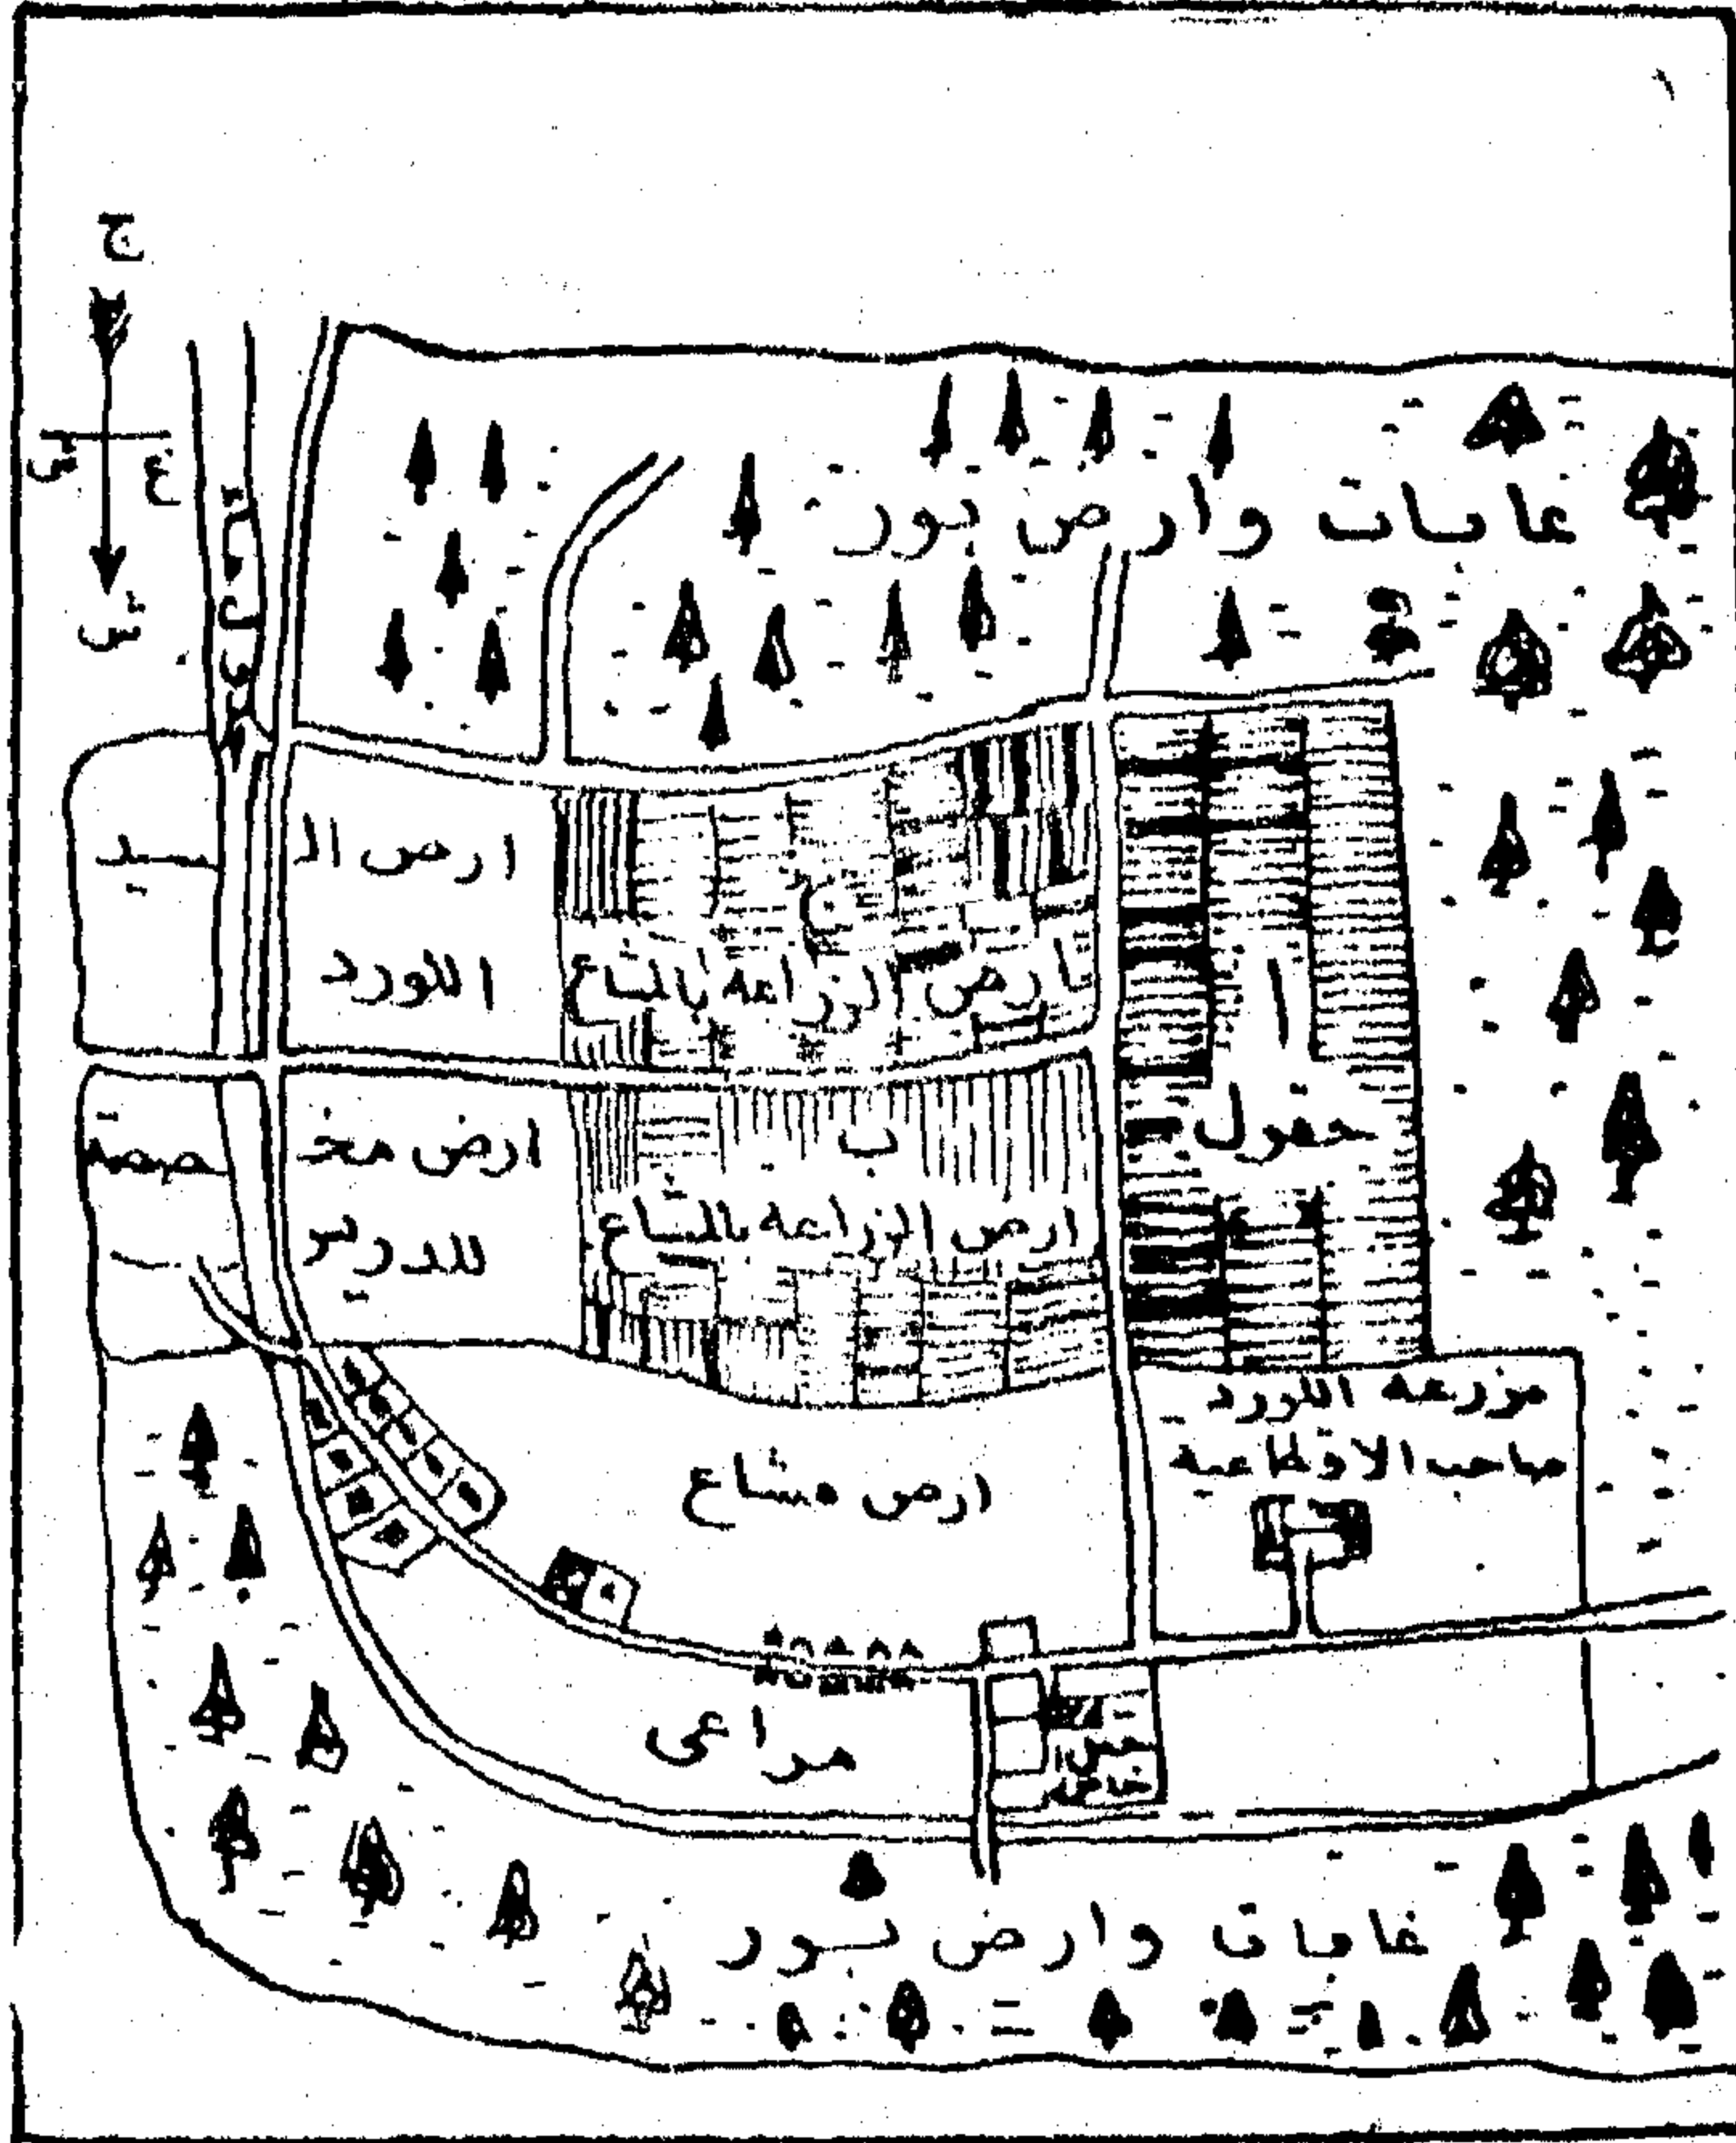 ج
ش
غ
ش
غابات وارض بور
ارض السيد
اللورد
ج
ارض الزراعة بالمشاع
ا
حقول
ارض مخصصة
للدريس
ب
ارض الزراعة بالمشاع
مزرعة اللورد
صاحب الاقطاعية
ارض مشاع
مراعى
خاص
غابات وارض بور